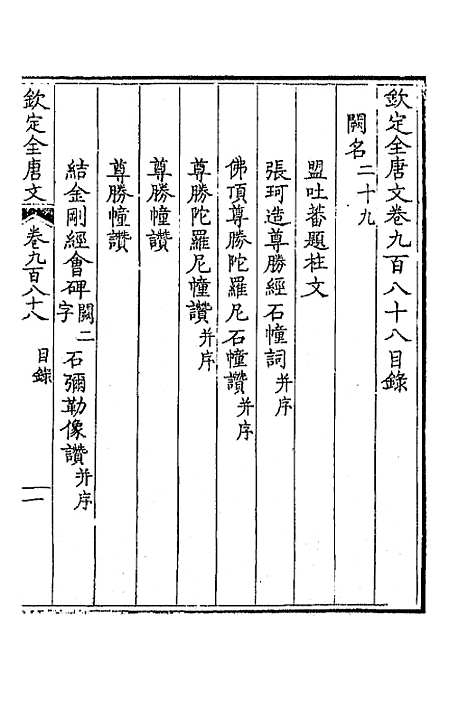 欽定全唐文卷九百八十八目錄
闕名二十九
盟吐蕃題柱文
張珂造尊勝經石幢詞并序
佛頂尊勝陀羅尼石幢讚并序
尊勝陀羅尼幢讚并序
尊勝幢讚
尊勝幢讚
結金剛經會碑闕二字 石彌勒像讚并序
欽定全唐文 卷九百八十八 目錄 一